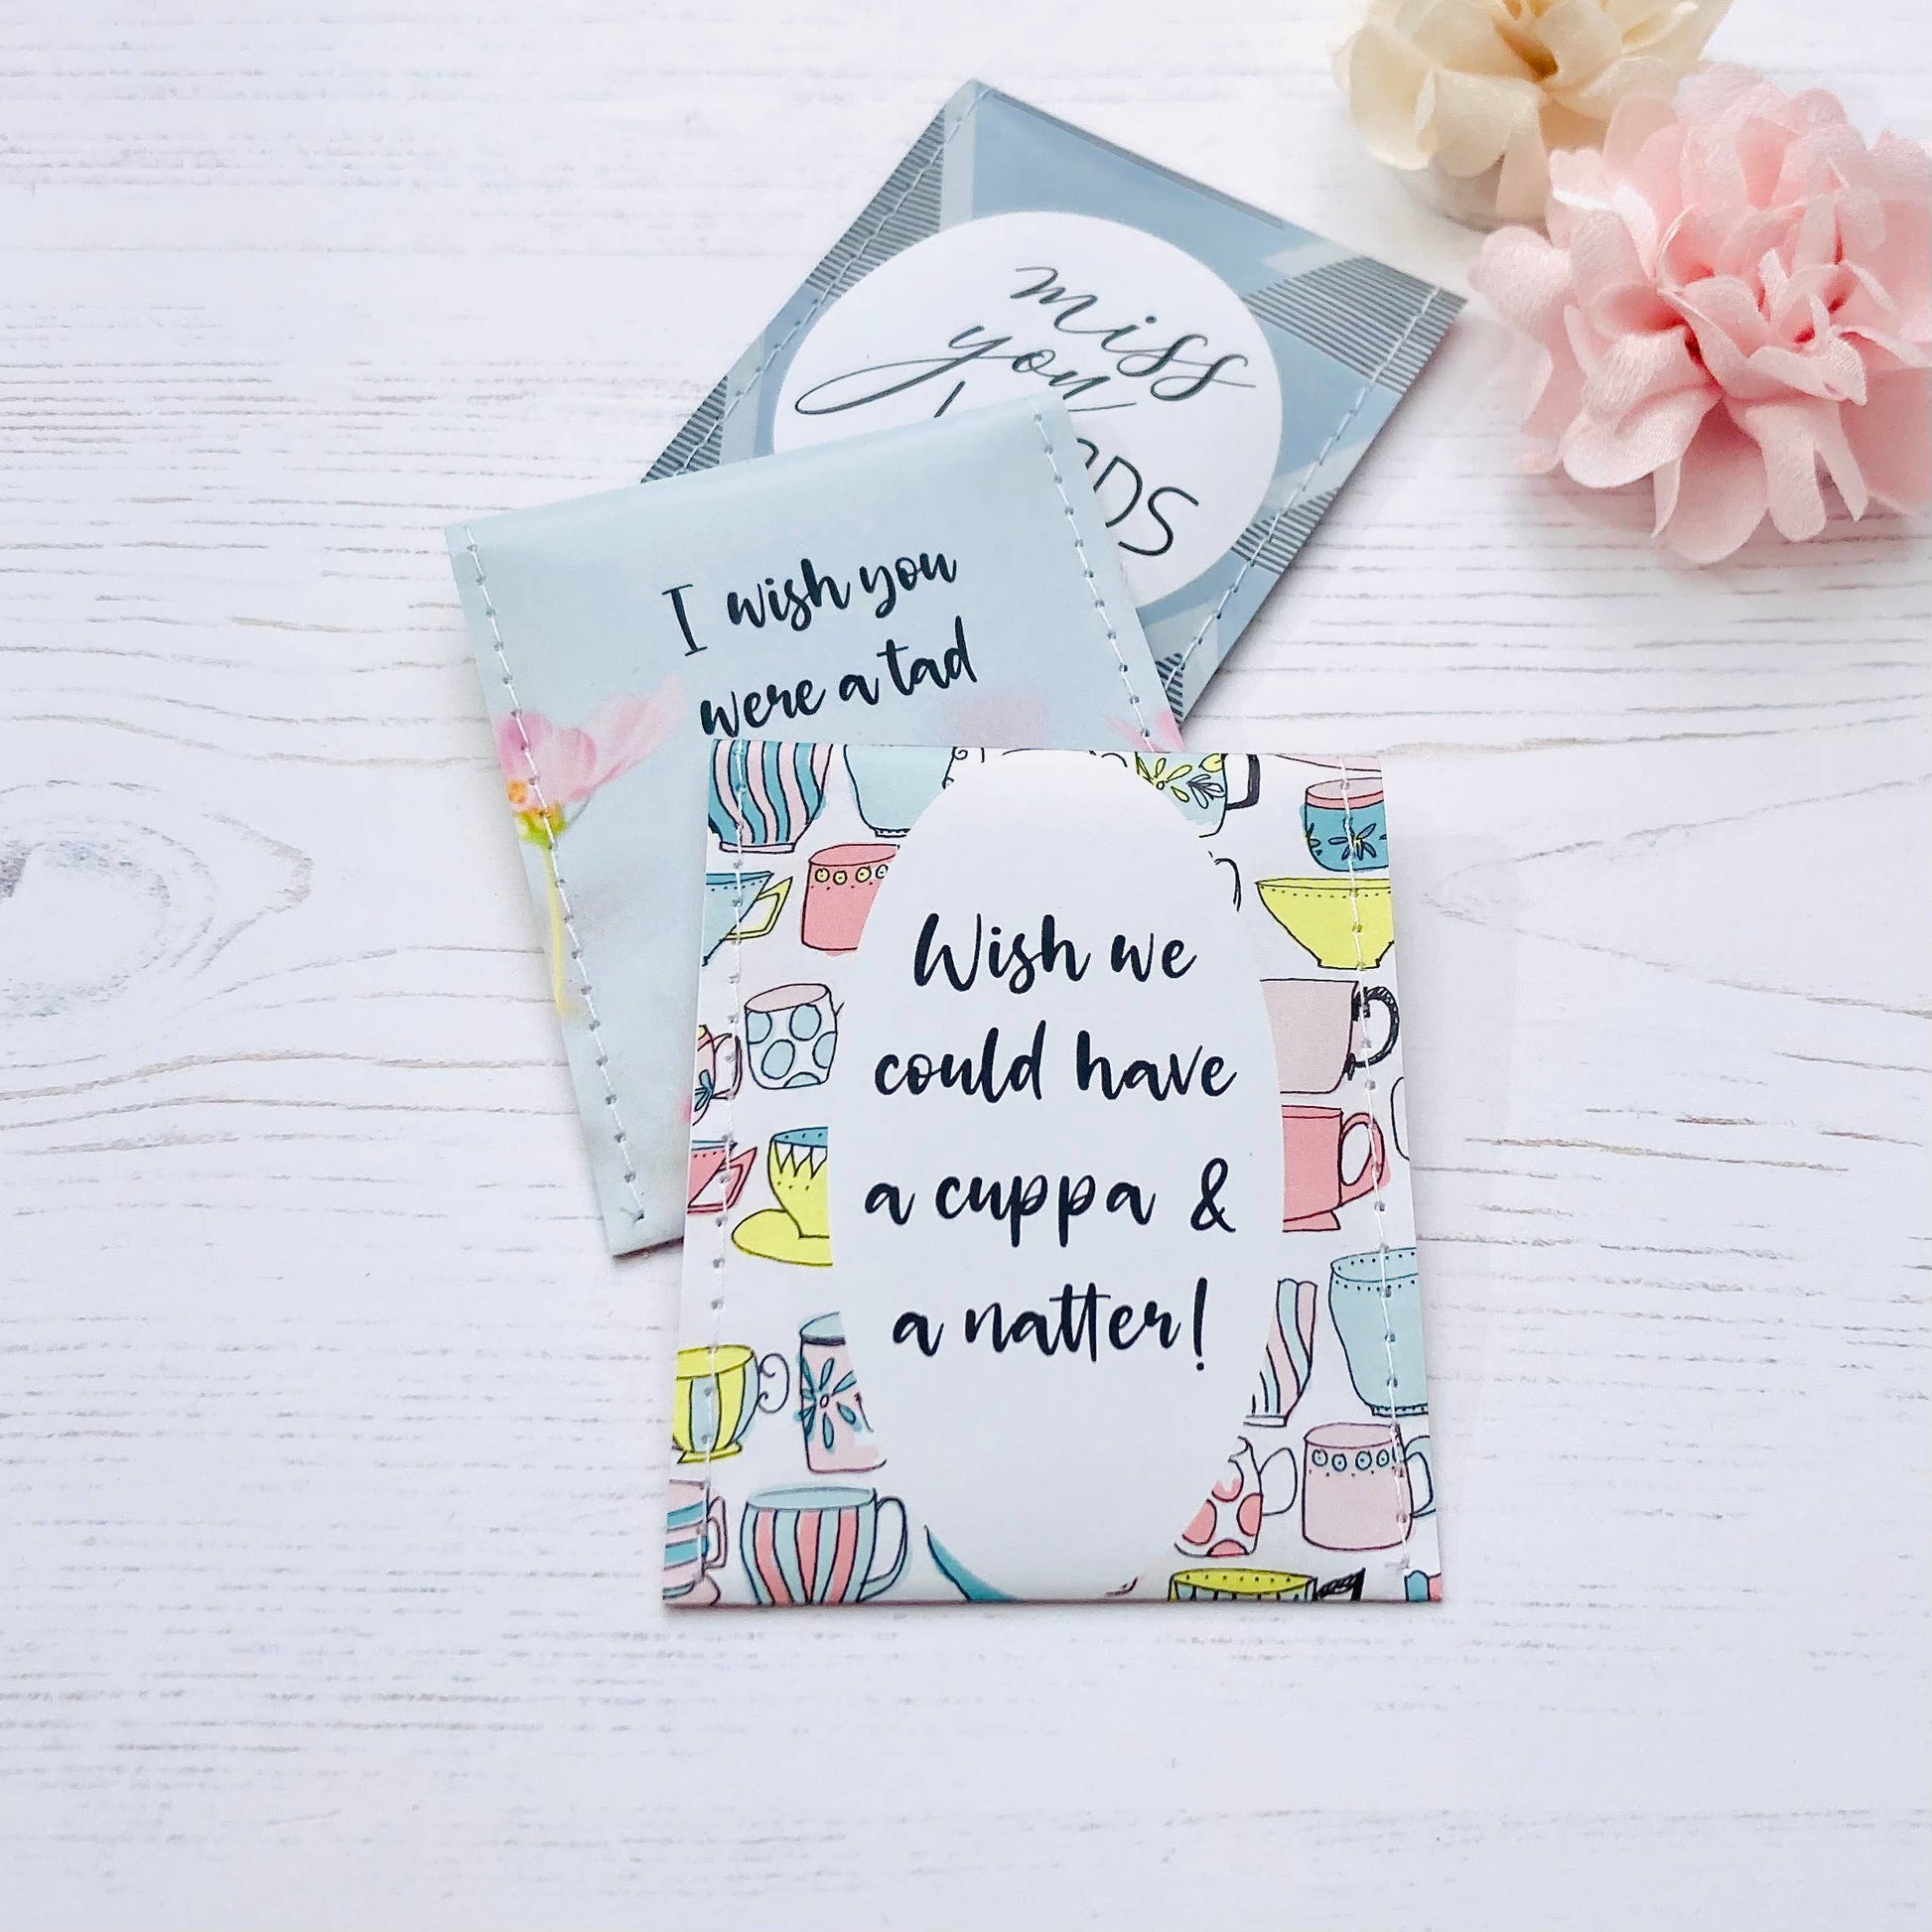 miss
you
I wish you
were a tad
Wish we
could have
a cuppa &
a natter!